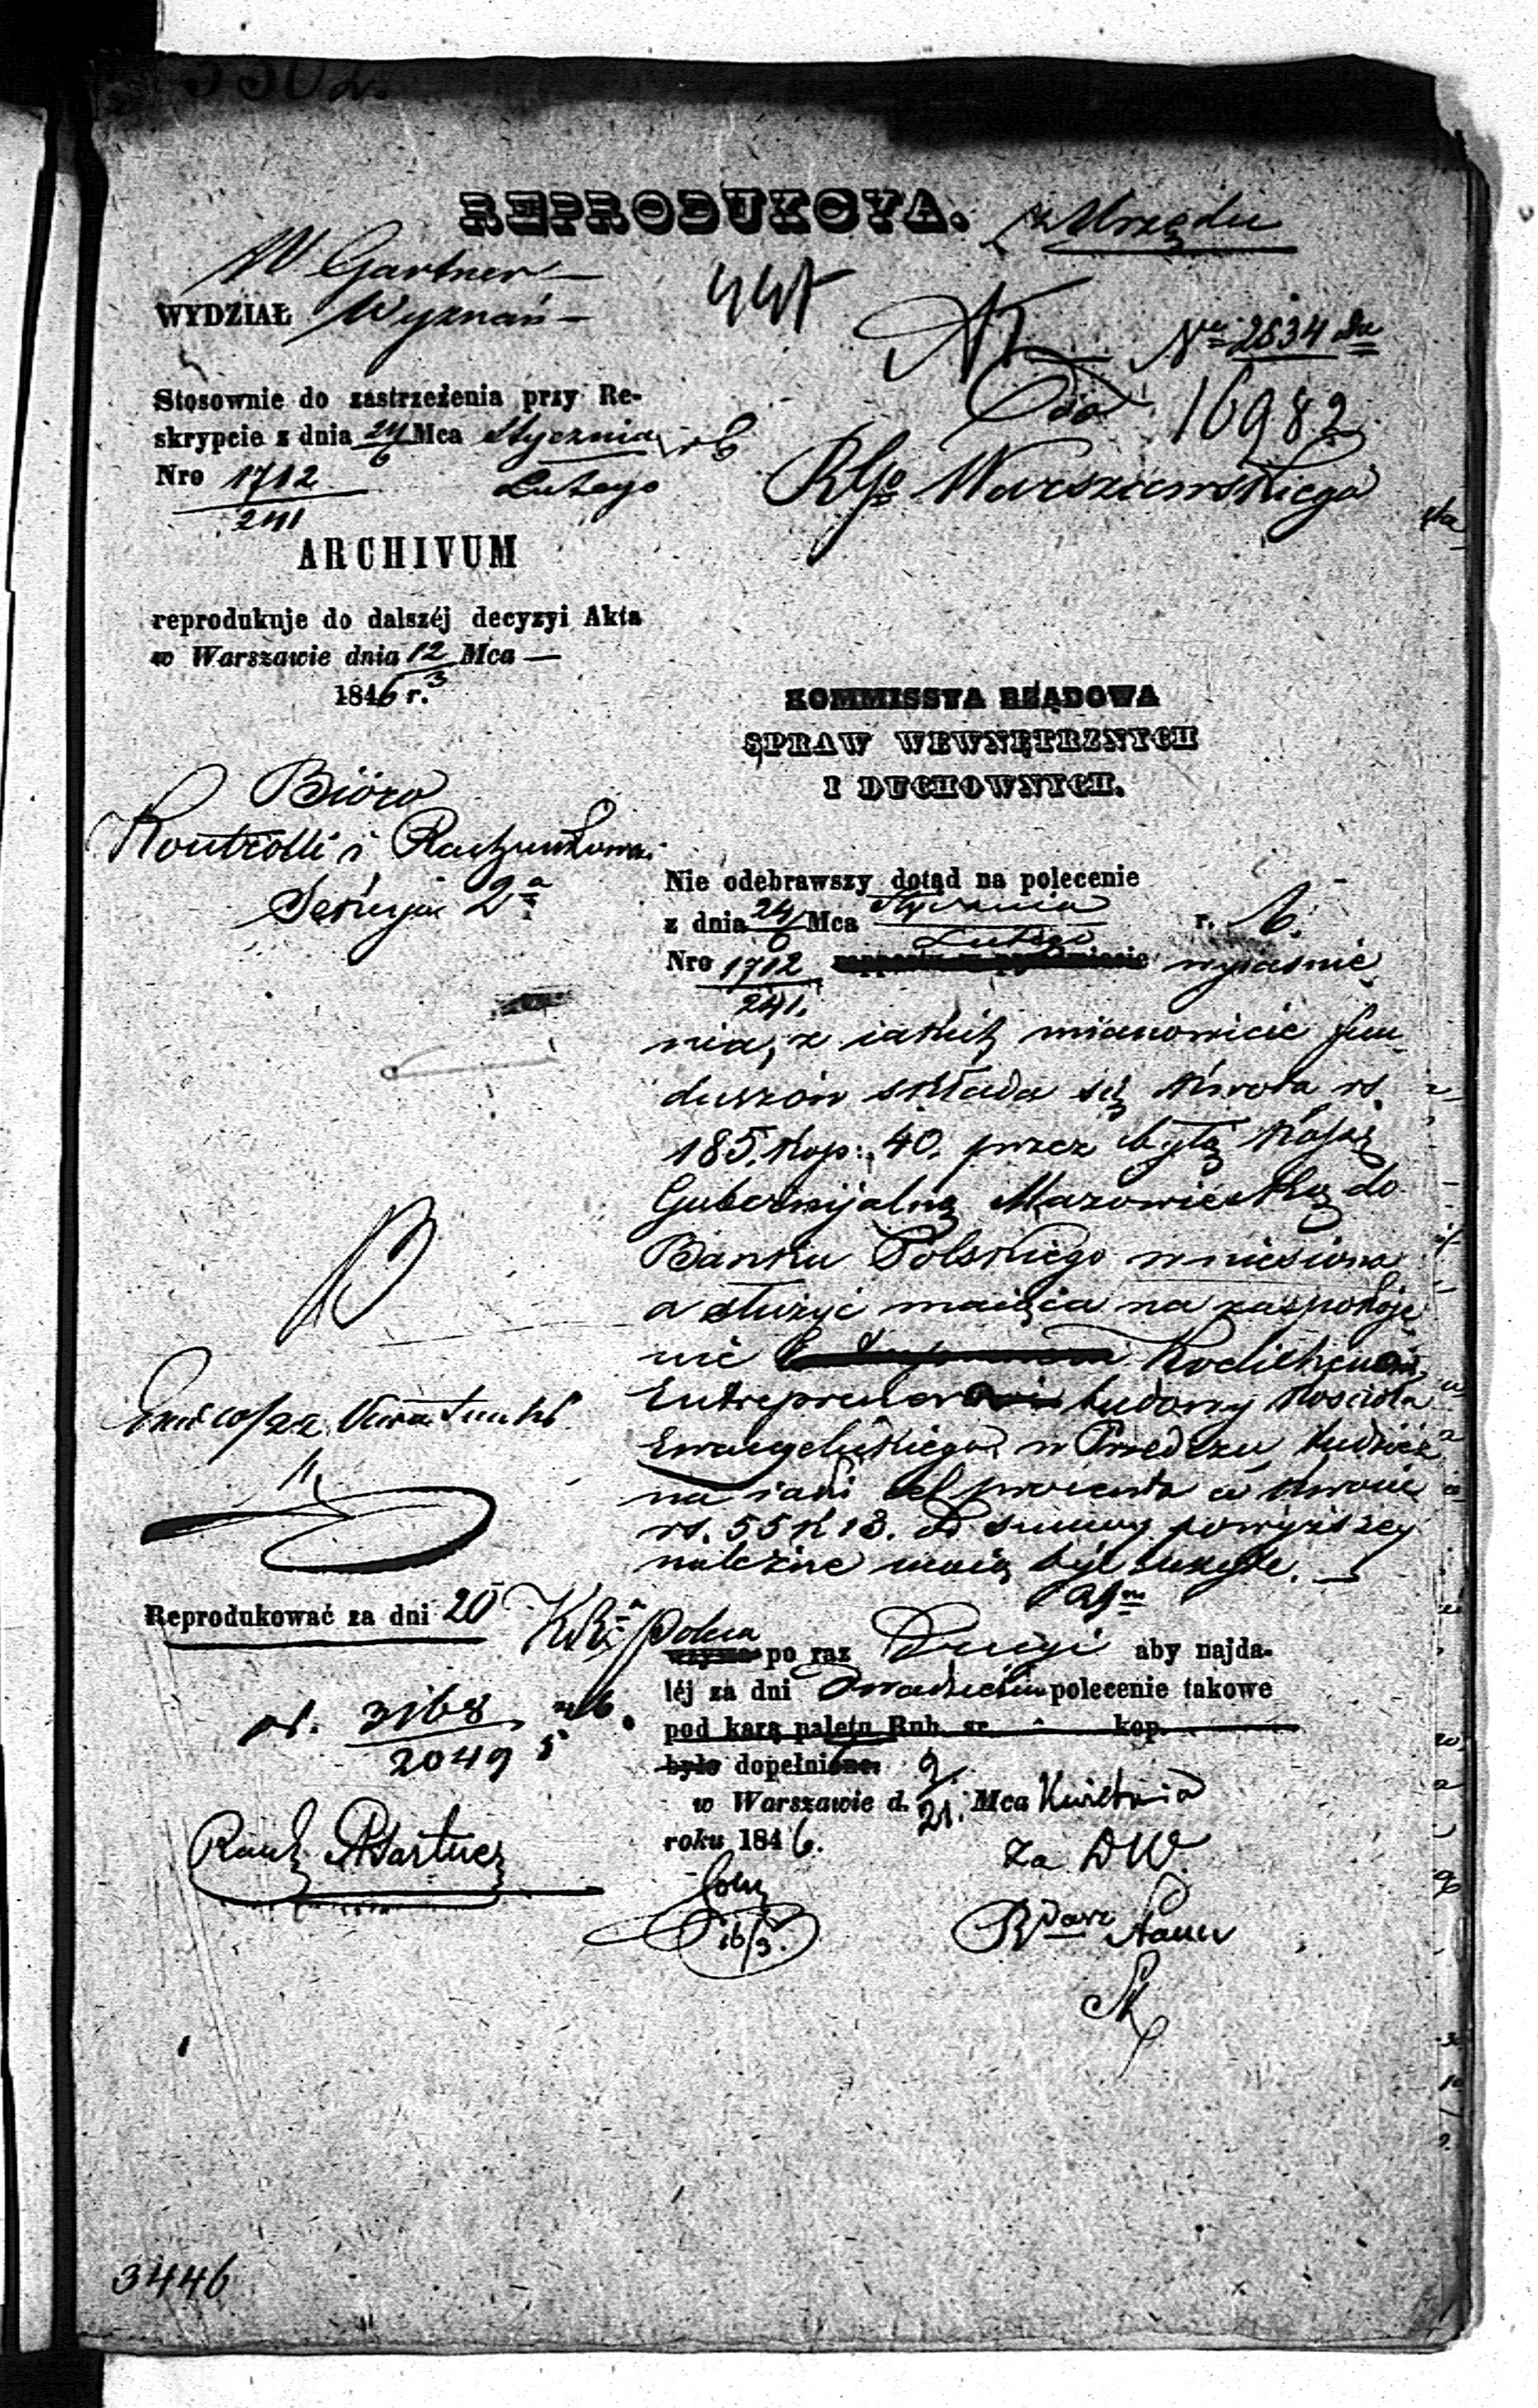 REPRODUKCYA.
z Urzędu
W Gartner
WYDZIAŁ Wyznań
447
Nr 2534
Do 16982
Rgo Warszawskiego
Stosownie do zastrzeżenia przy Re-
skrypcie z dnia 24/6 Mca Stycznia/Lutego r b
Nro 1712/241
ARCHIVUM
reprodukuje do dalszéj decyzyi Akta
w Warszawie dnia 12/3 Mca —
1846 r.
KOMMISSYA RZĄDOWA
SPRAW WEWNĘTRZNYCH
I DUCHOWNYCH.
Bióro
Kontrolli i Rachunkowoś
Sekcyja 2a
Nie odebrawszy dotąd na polecenie
z dnia 24/6 Mca Stycznia/Lutego r. b.
Nro 1712/241. wyjaśnie
nia, z iakich mianowicie fun
duszów składa się kwota rs.
185. kop: 40. przez byłą Kassę
Gubernijalną Mazowiecką do
Banku Polskiego wniesiona
a służyć maiąca na zaspokoje
nie
Entreprenera budowy kościoła
Ewangelickiego w Przedczu, tudzież
na iaki cel procenta w kwocie
rs. 55 k 13. od summy powyższey
należne maią być użyte. —
Reprodukować za dni 20
KR poleca
po raz Drugi aby najda-
léj za dni Dwadzieścia polecenie takowe
pod karą paletu Rub. sr. kop.
było dopełnione.
w Warszawie d. 9/21. Mca Kwietnia
roku 1846.
Za DW.
3168
2049
16/3.
3446